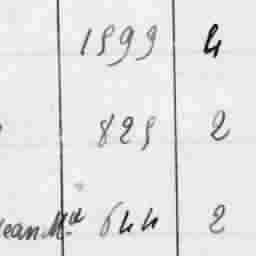 1599 4
825 2
Jean Md 644 2